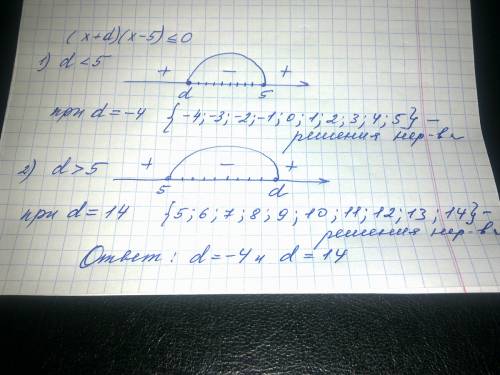 (x+d)(x-5)≤0
1) d<5
+ - +
d 5
при d=-4 {-4;-3;-2;-1;0;1;2;3;4;5}-
решения нер-ва
2) d>5
+ - +
5 d
при d=14 {5;6;7;8;9;10;11;12;13;14}-
решения нер-ва
Ответ: d=-4 и d=14